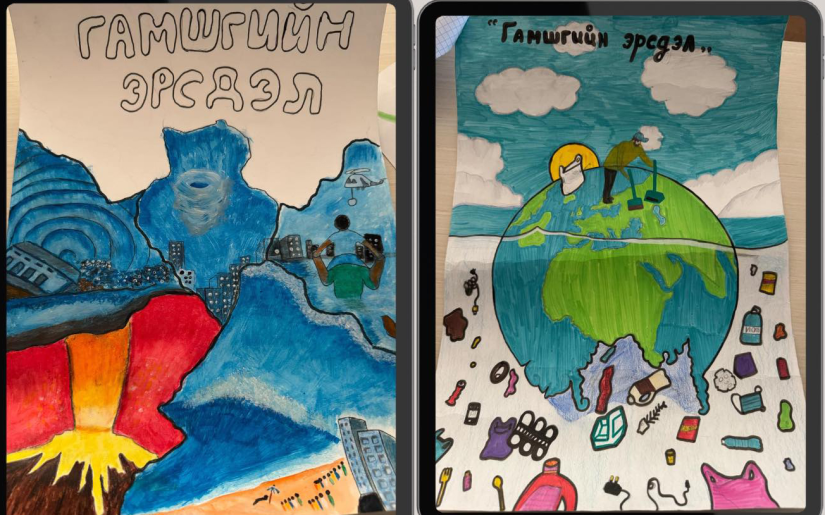 ГАМШГИЙН
ЭРСДЭЛ
"Гамшгийн эрсдэл„